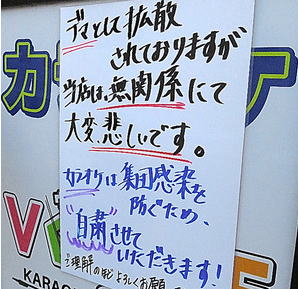 デマとして拡散
されておりますが
当店は、無関係にて
大変悲しいです。
カラオケは集団感染を
防ぐため、
"自粛"させて
いただきます!
ご理解の程よろしくお願
カ
ア
V
KARAO